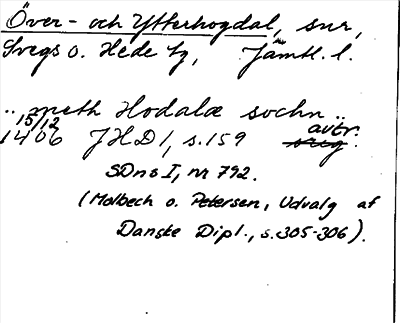 Över- och Ytterhogdal, snr,
Svegs o. Hede tg, Jämtl. l.
.. meth Hodalæ sochn ..
15/12 avtr.
1406 JHD 1, s. 159 orig.
SDns I, nr 792.
(Molbech o. Petersen, Udvalg af
Danske Dipl., s. 305-306).